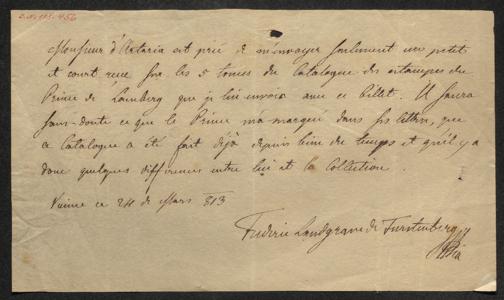 Monsieur d'Artaria est prié de m'envoyer seulement un petit
et court recu sur les 5 tomes du Catalogue des estampes du
Prince de Lamberg que je lui envois avec ce billet. Il saura
sans-doute ce que le Prince m'a marqué dans sa lettre, que
ce Catalogue a été fait déjà depuis bien du temps et qu'il y a
donc quelques differences entre lui et la Collection.
Vienne ce 24 de Mars 813
Frederic Landgrave de Furstenberg